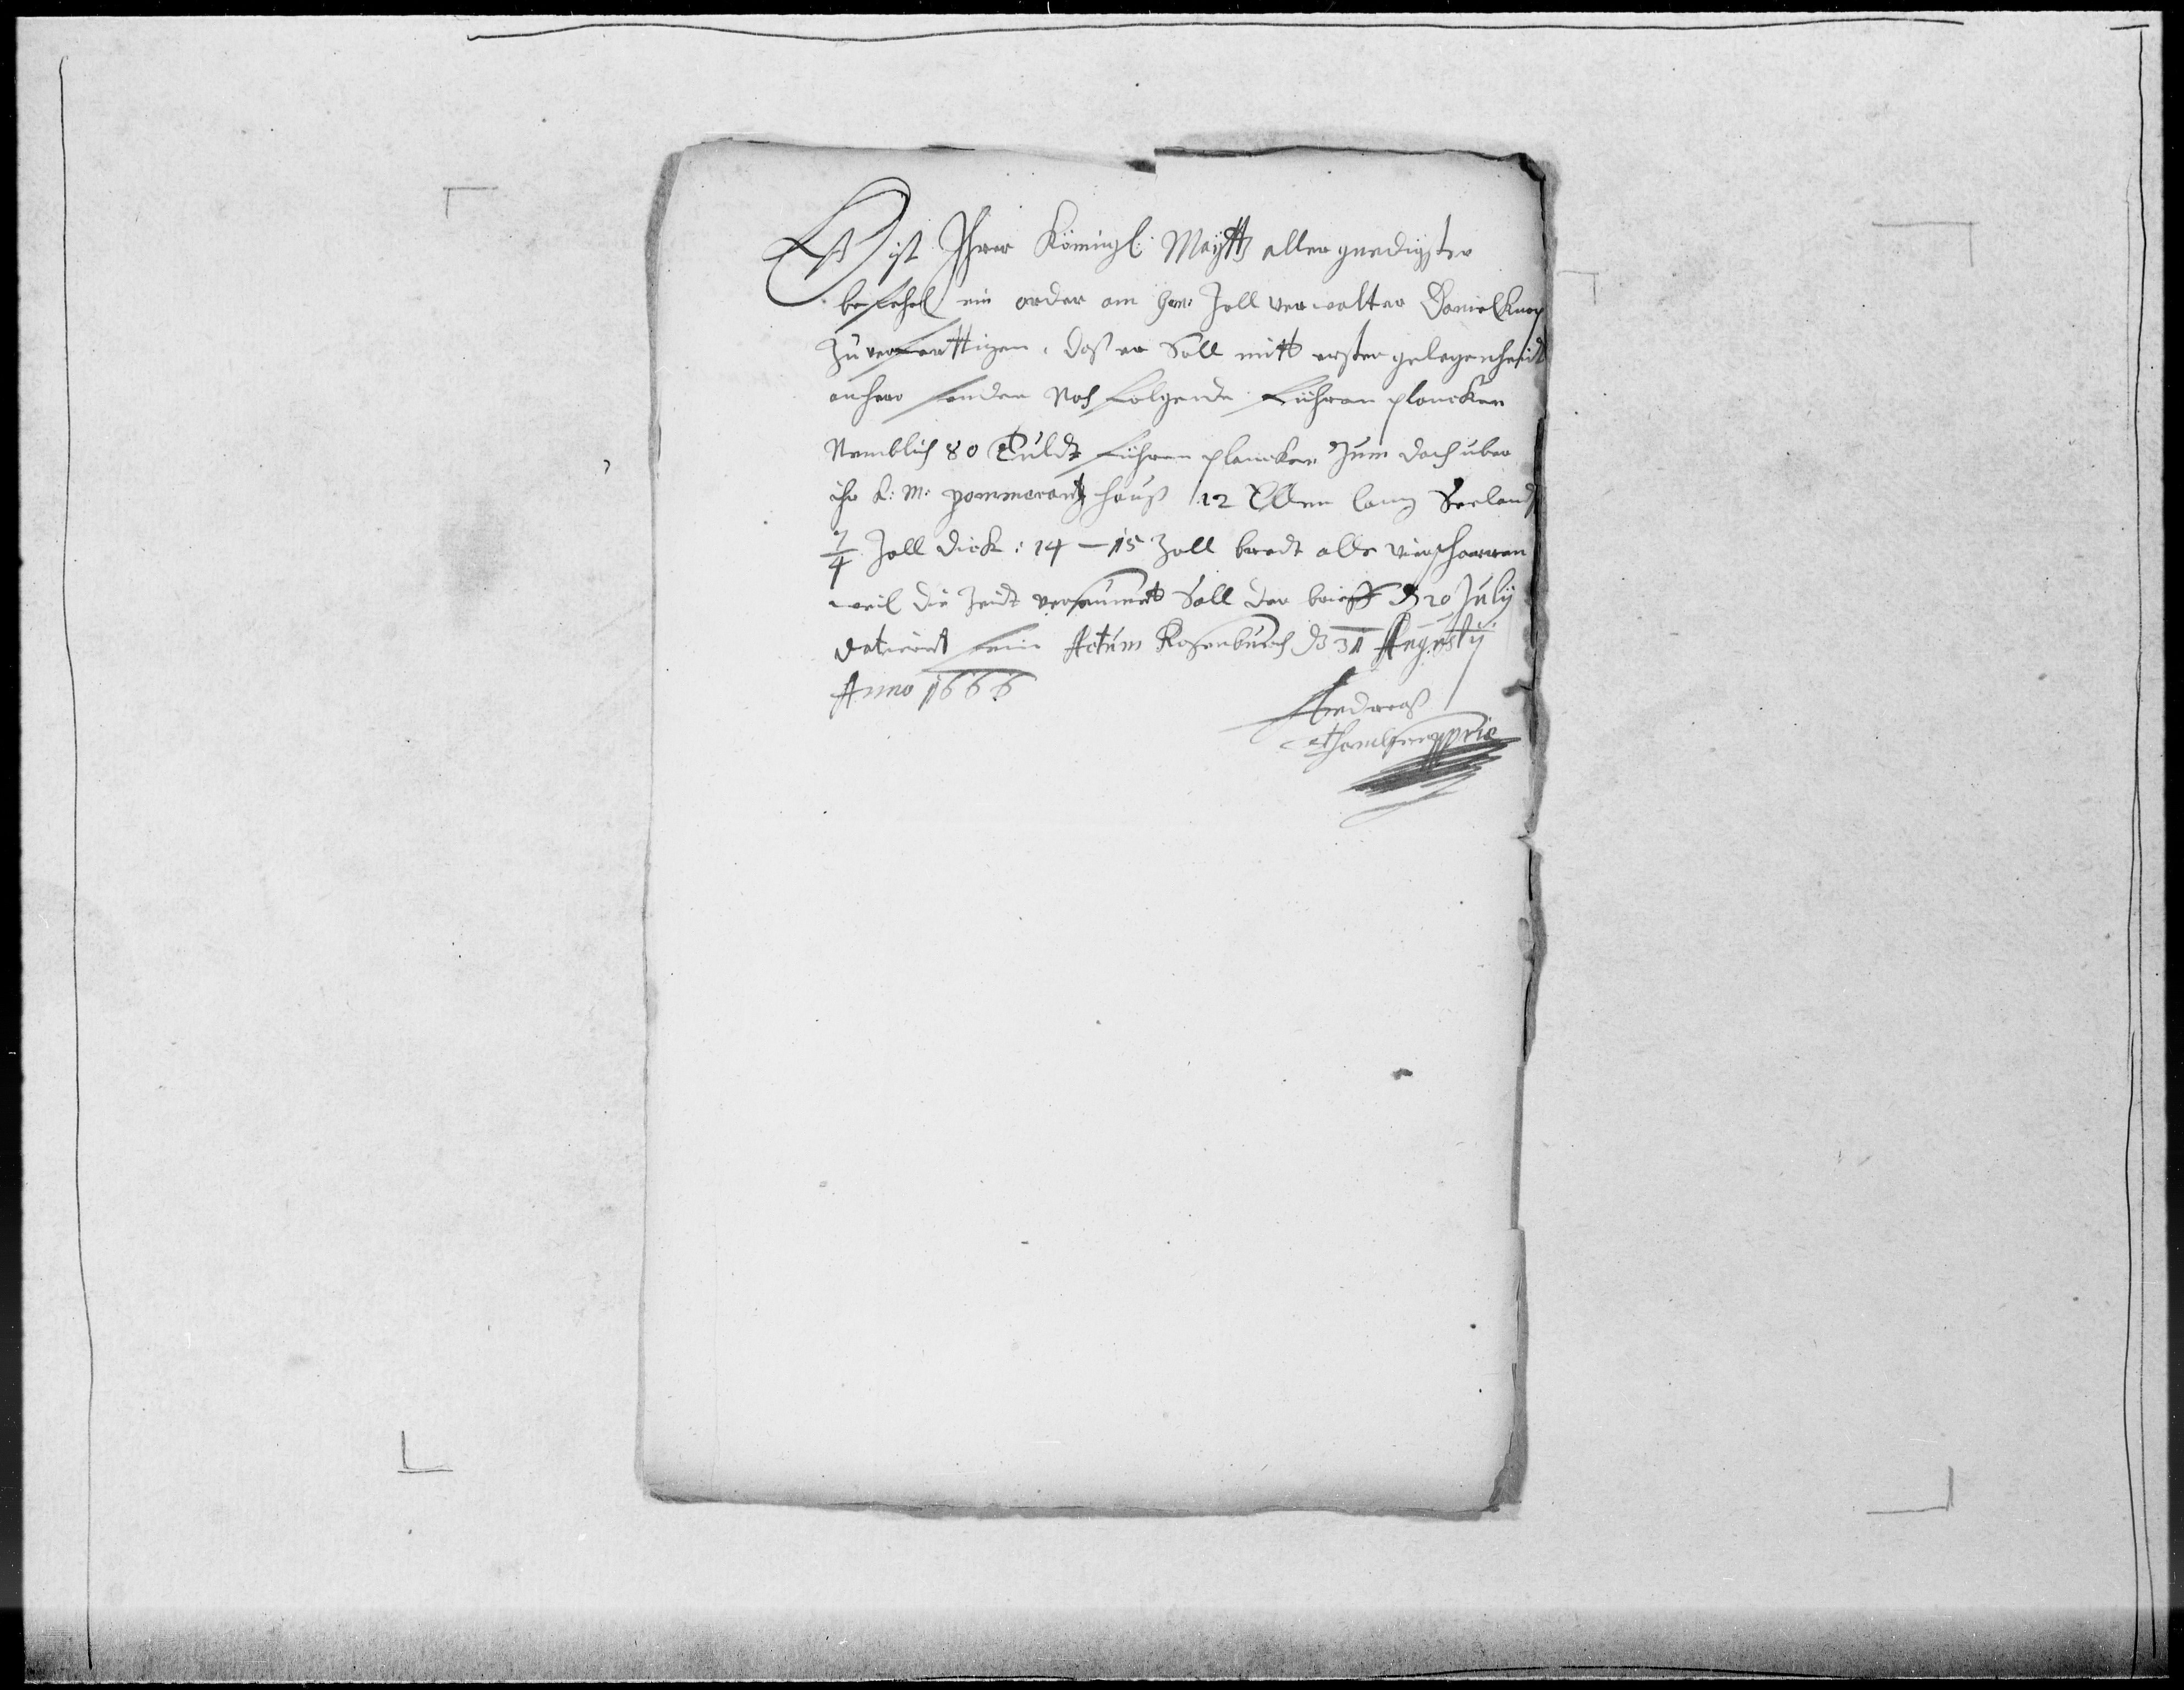 Es ist Ihrer Königl: Maytt allergnedigster
befehel ein order am Hern: Zoll verwalter Daniel Knop
Zu verfærttigen, daß er Soll mitt erster gelegenheidt
anhero senden Nachfolgende führen plancken
Nemblich 80 Tuldt führen plancken zum dach uber
ihr K: M: pommerantz hauß 12 Ellen lang Seelands
7/4 Zoll dick: 14 – 15 Zoll bredt alle
weil die Zeidt versaumet Soll der brieff d 20 July
datiert sein Actum Rosenburch d 31 Augusty
Anno 1666
Andreas
mppria